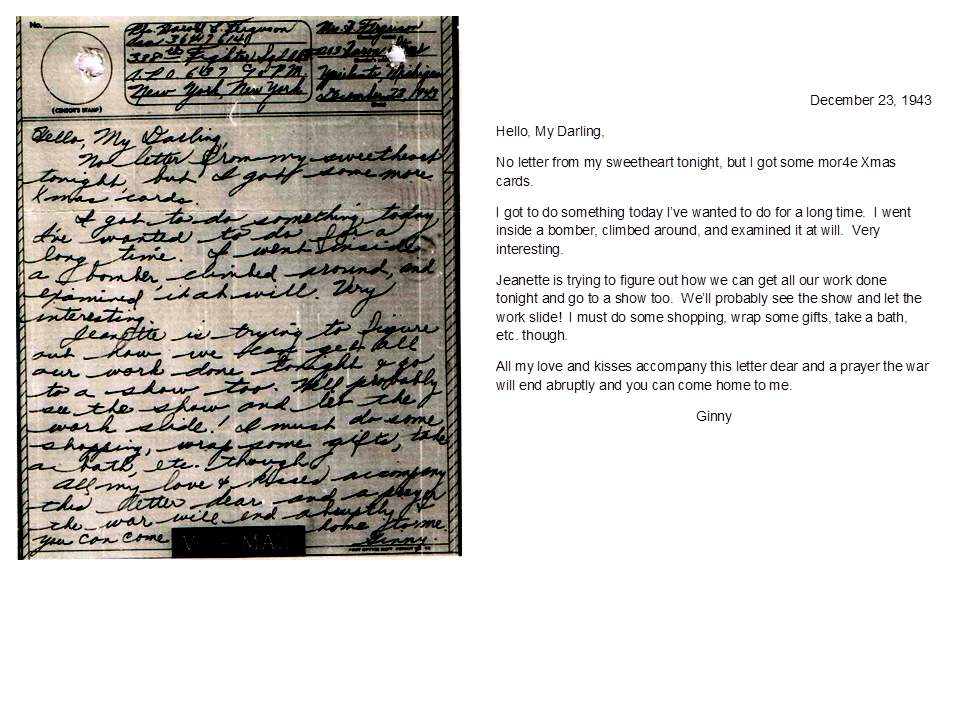 No.
(CENSOR'S STAMP)
Harold L. Ferguson
36476140
338th Fighter Sqd
A.P.O. 637 % P.M.
New York, New York
Ferguson
Michigan
December 23, 1943
Hello, My Darling,
No letter from my sweetheart
tonight, but I got some more
Xmas cards.
I got to do something today
I've wanted to do for a
long time. I went inside
a bomber, climbed around, and
examined it at will. Very
interesting.
Jeanette is trying to figure
out how we can get all
our work done tonight & go
to a show too. We'll probably
see the show and let the
work slide! I must do some
shopping, wrap some gifts, take
a bath, etc. though.
All my love & kisses accompany
this letter dear and a prayer
the war will end abruptly &
you can come home to me.
Ginny.
V - MAIL
December 23, 1943
Hello, My Darling,
No letter from my sweetheart tonight, but I got some mor4e Xmas
cards.
I got to do something today I've wanted to do for a long time.  I went
inside a bomber, climbed around, and examined it at will.  Very
interesting.
Jeanette is trying to figure out how we can get all our work done
tonight and go to a show too.  We'll probably see the show and let the
work slide!  I must do some shopping, wrap some gifts, take a bath,
etc. though.
All my love and kisses accompany this letter dear and a prayer the war
will end abruptly and you can come home to me.
Ginny